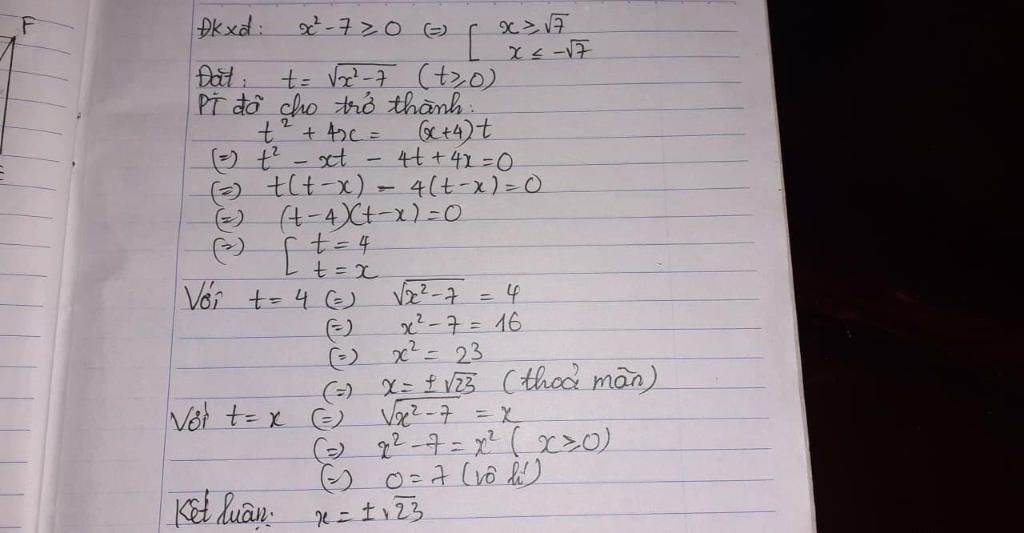 F
ĐKxđ: x² - 7 ≥ 0 (=) [ x ≥ √7
x ≤ -√7
Đặt: t = √x²-7 (t ≥ 0)
PT đã cho trở thành:
t² + 4x = (x+4)t
(=) t² - xt - 4t + 4x = 0
(=) t(t-x) - 4(t-x) = 0
(=) (t-4)(t-x) = 0
(=) [ t = 4
t = x
Với t = 4 (=) √x²-7 = 4
(=) x² - 7 = 16
(=) x² = 23
(=) x = ±√23 (thoả mãn)
Với t = x (=) √x²-7 = x
(=) x² - 7 = x² (x ≥ 0)
(=) 0 = 7 (vô lí)
Kết luận: x = ±√23